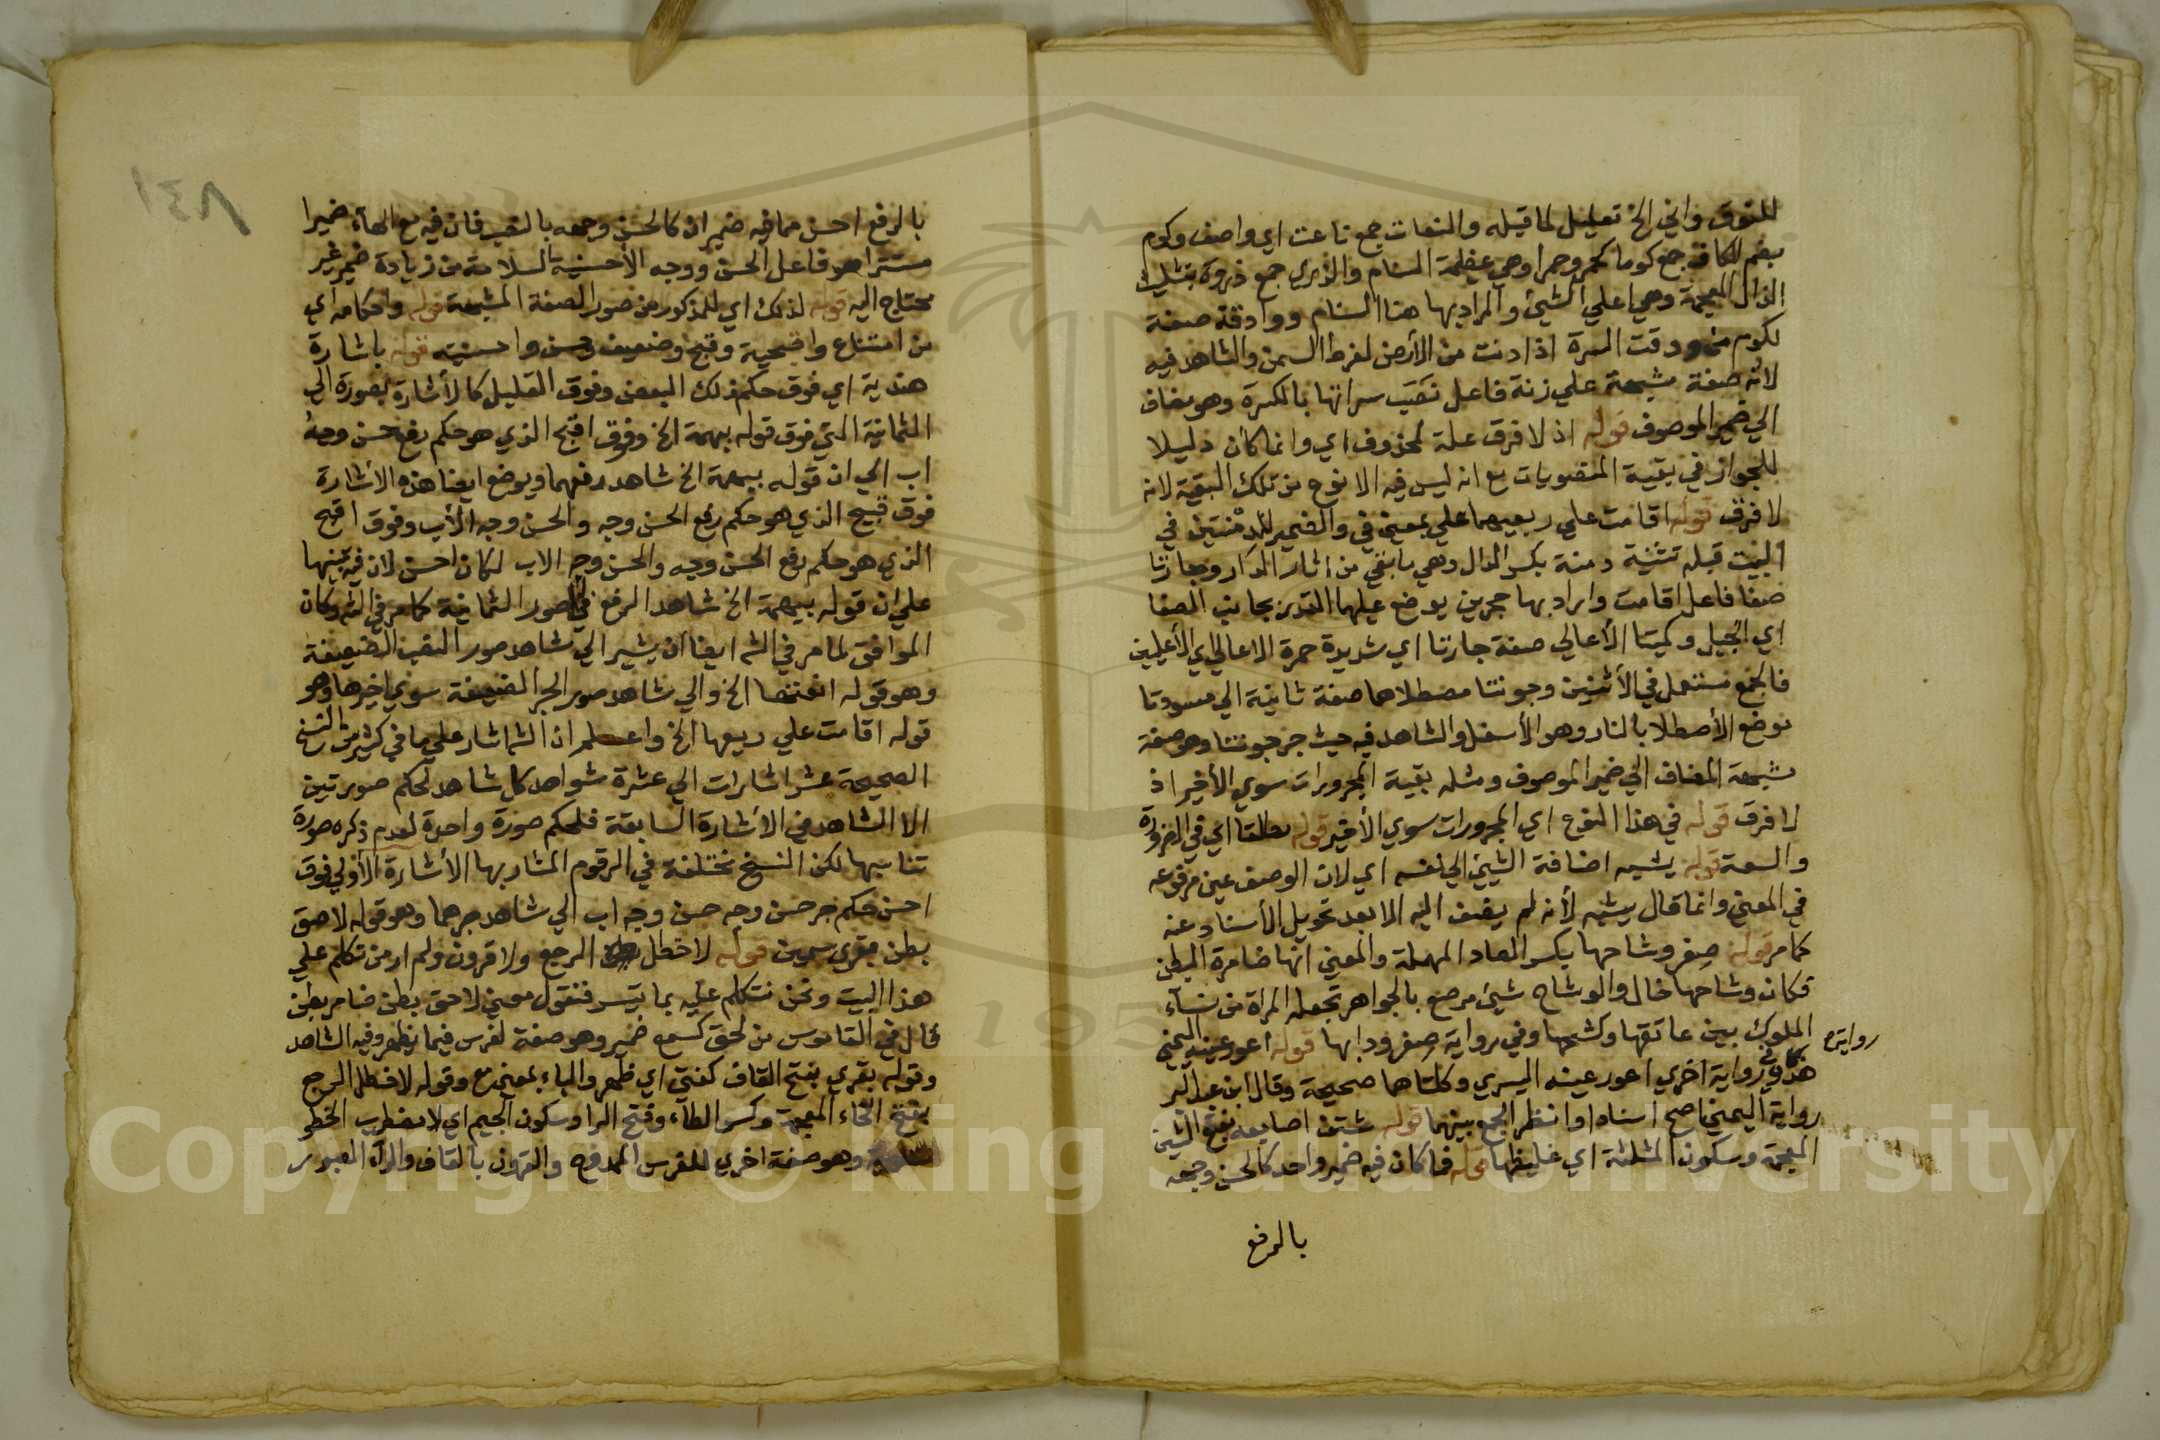 للتوق واني الخ تعليل لما قبله والنعات جمع ناعت اي واصف وكوم
بضم الكاف جمع كوما كحمر وحمرا وهي عظمة السنام والذري جمع ذروة بتثليث
الذال المعجمة وهي اعلي الشيء والمراد بها هنا السنام ووادقة صفة
لكوم من ودقت السرة اذا دنت من الأرض لفرط السمن والشاهد فيه
لانه صفة مشبهة علي زنة فاعل نصب سراتها بالكسرة وهو مضاف
الي ضمير الموصوف قوله اذ لا فرق علة لمحذوف اي وانما كان دليلا
للجواز في بقية المنصوبات مع انه ليس فيه الا نوع من تلك البقية لانه
لا فرق قوله اقامت علي ربعيهما علي بمعني في والضمير للدمنتين في
البيت قبله تثنية دمنة بكسر الدال وهي ما بقي من اثار الدار وجارتا
صفا فاعل اقامت واراد بها حجرين يوضع عليهما القدر بجانب الصفا
اي الجبل وكميتا الأعالي صفة جارتا اي شديدة حمرة الاعالي اي الأعليين
فالجمع مستعمل في الأثنين وجونتا مصطلاهما صفة ثانية اي مسودتا
موضع الأصطلا بالنار وهو الأسفل والشاهد فيه حيث جر جونتا وهو صفة
مشبهة المضاف الي ضمير الموصوف ومثله بقية المجرورات سوي الأخير اذ
لا فرق قوله في هذا النوع اي المجرورات سوي الأخير قوله مطلقا اي في الضرورة
والسعة قوله يشبه اضافة الشيئ الي نفسه اي لان الوصف عين مرفوعه
في المعني وانما قال يشبه لأنه لم يضف اليه الا بعد تحويل الأسناد عنه
كما مر قوله صفر وشاحها بكسر الصاد المهملة والمعني انها ضامرة البطن
فكان وشاحها خال والوشاح شيئ مرصع بالجواهر تجعله المرأة من نساء
الملوك بين عاتقها وكشحها وفي رواية صفر ردائها قوله اعور عينه اليمني
رواية
هذا وفي رواية اخري اعور عينه اليسري وكلتاهما صحيحة وقال ابن عبد البر
رواية اليمني اصح اسنادا وانظر الجمع بينهما قوله شثن اصابعه بفتح الشين
المعجمة وسكون المثلثة اي غليظها قوله فما كان فيه ضمير واحد كالحسن وجهه
بالرفع
١٤٨
بالرفع احسن مما فيه ضميران كالحسن وجهه بالنصب فان فيه مع الهاء ضميرا
مستترا هو فاعل الحسن ووجه الأحسنية السلامة من زيادة ضمير غير
محتاج اليه قوله لذلك اي للمذكور من صور الصفة المشبهة قوله واحكامه اي
من امتناع واقبحية وقبح وضعيف وحسن واحسنيته قوله باشارة
هندية اي فوق حكم ذلك البعض وفوق القليل كالأشارة بصورة الي
الثمانية التي فوق قوله ببهمة الخ وفوق اقبح الذي هو حكم رفع حسن وجه
اب الي ان قوله ببهمة الخ شاهد رفعهما ويوضع ايضا هذه الأشارة
فوق قبيح الذي هو حكم رفع الحسن وجه والحسن وجه الأب وفوق اقبح
الذي هو حكم رفع الحسن وجه والحسن وجه الاب لكان احسن لان فيه تنبيها
علي ان قوله ببهمة الخ شاهد الرفع في الصور الثمانية كما مر في الشم وكان
الموافق لما مر في الشم ايضا ان يشير الي شاهد صور النصب الضعيفة
وهو قوله انعتها الخ والي شاهد صور الجر الضعيفة سوي اخيرها وهو
قوله اقامت علي ربعيها الخ واعلم ان الشم اشار علي ما في كثير من النسخ
الصحيحة عشر اشارات الي عشرة شواهد كل شاهد لحكم صورتين
الا الشاهد في الأشارة السابعة فلحكم صورة واحدة لعدم ذكره صورة
تناسبها لكن النسخ مختلفة في الرقوم المشار بها الأشارة الأولي فوق
احسن حكم جر حسن وجه حسن وجه اب الي شاهد جرهما وهو قوله لاحق
بطن بقري سمين قوله لا خطل الرجع ولا قرون ولم ار من تكلم علي
هذا البيت ونحن نتكلم عليه بما تيسر فنقول معني لاحق بطن ضامر بطن
قال في القاموس من لحق كسمع ضمير وهو صفة لفرس فيما يظهر وفيه الشاهد
وقوله بقري بفتح القاف كفتي اي ظهر والباء بمعني مع وقوله لا خطل الرجع
بفتح الخاء المعجمة وكسر الطاء وفتح الرا وسكون الجيم اي لا مضطرب الخطو
وهو صفة اخري للفرس الممدوح والقرون بالقاف والراء